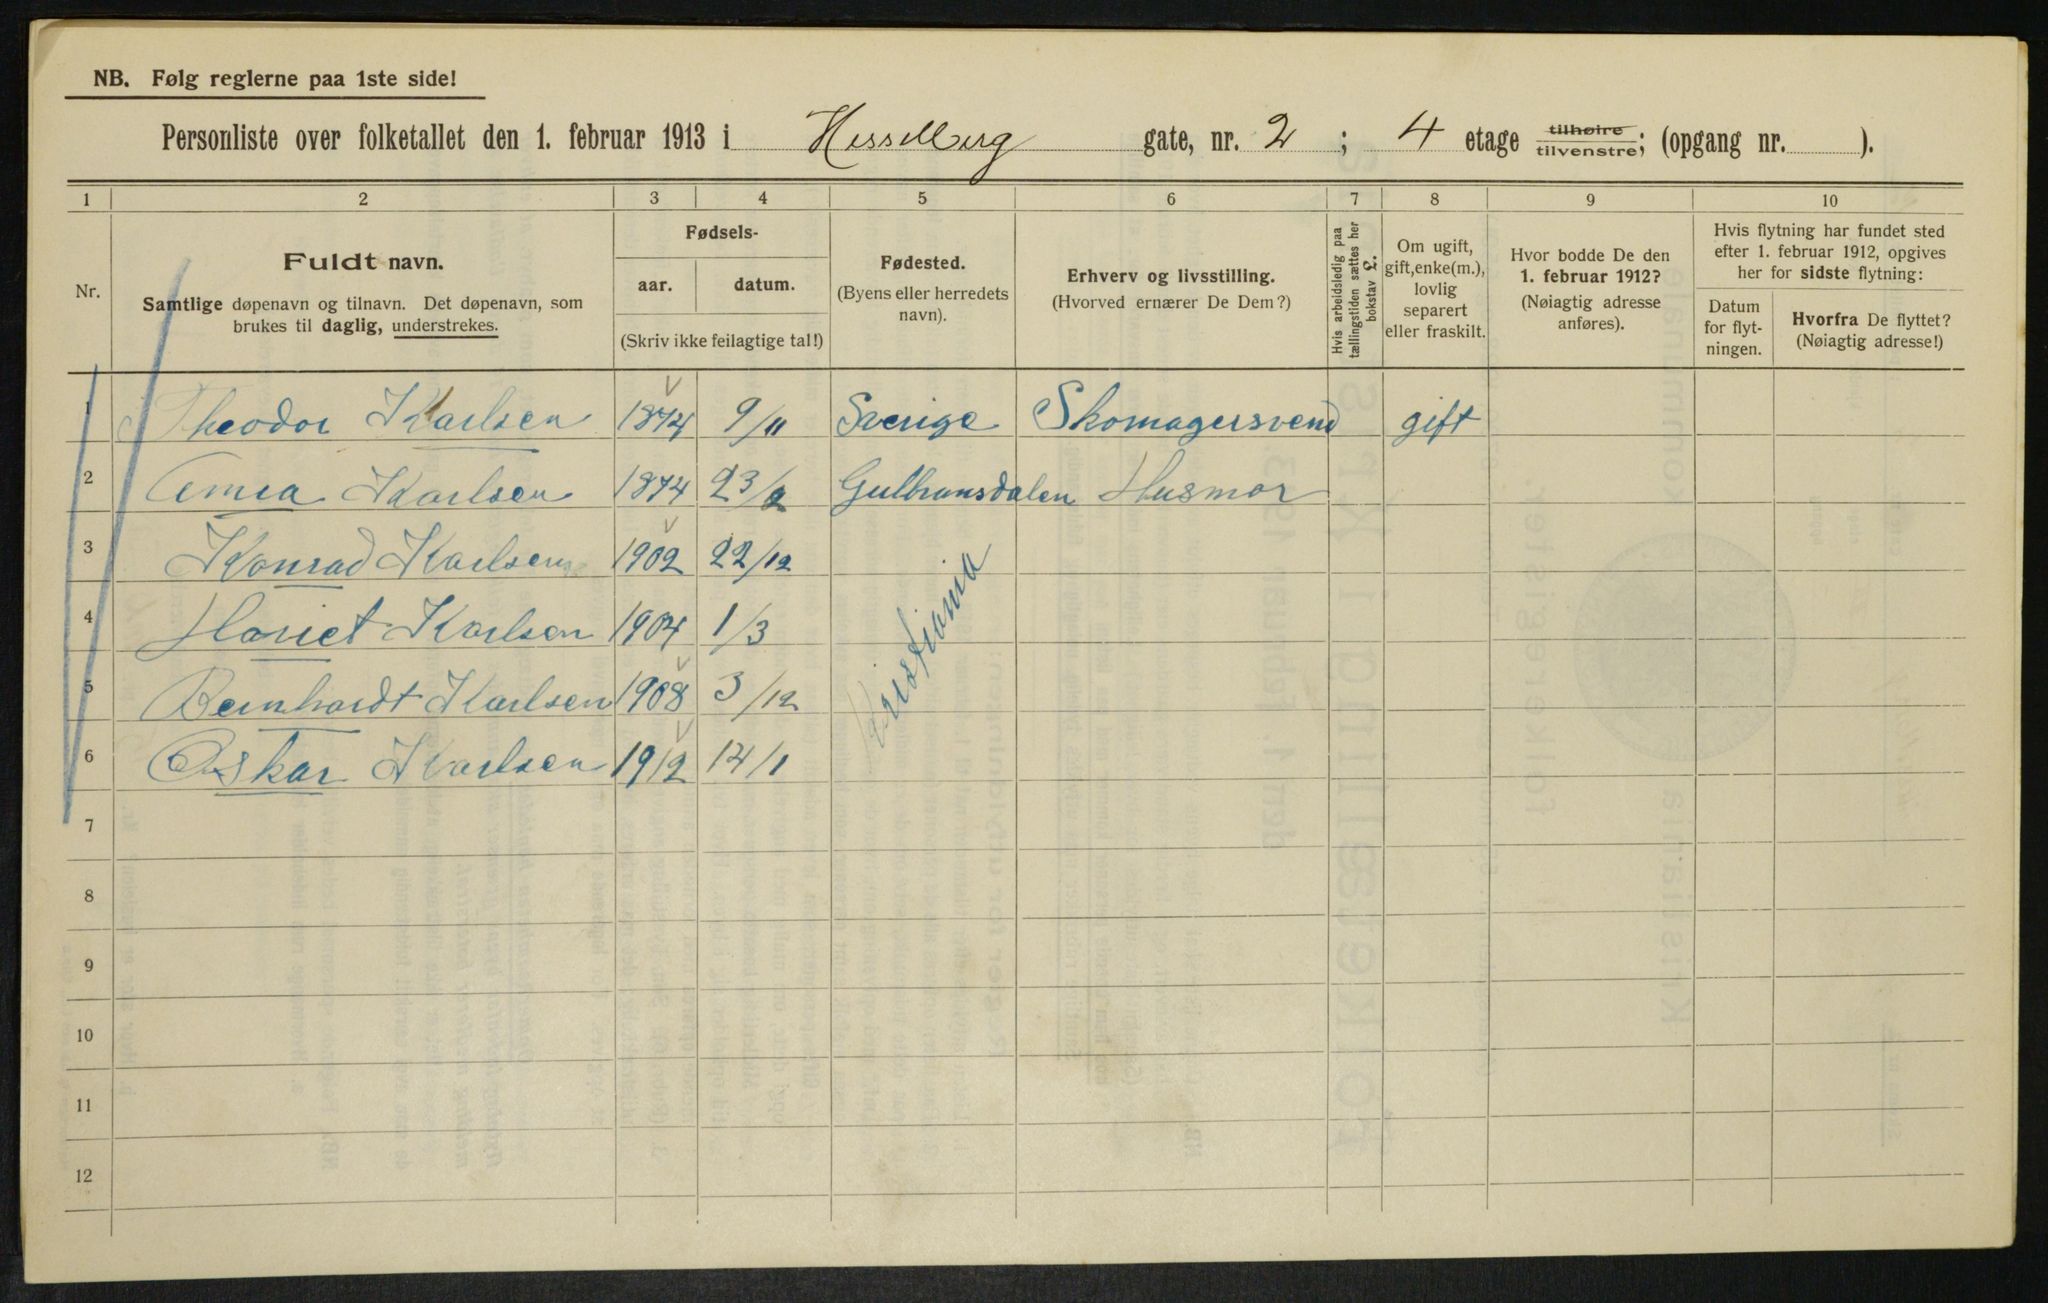 NB. Følg reglerne paa 1ste side!
Personliste over folketallet den 1. februar 1913 i Hesselberg gate, nr. 2 ; 4 etage tilhøire tilvenstre; (opgang nr. ).
1 2 3 4 5 6 7 8 9 10
Nr.
Fuldt navn.
Samtlige døpenavn og tilnavn. Det døpenavn, som
brukes til daglig, understrekes.
Fødsels-
aar. datum.
(Skriv ikke feilagtige tal!)
Fødested.
(Byens eller herredets
navn).
Erhverv og livsstilling.
(Hvorved ernærer De Dem?)
Hvis arbeidsledig paa
tællingstiden sættes her
bokstav L.
Om ugift,
gift, enke(m.),
lovlig
separert
eller fraskilt.
Hvor bodde De den
1. februar 1912?
(Nøiagtig adresse
anføres).
Hvis flytning har fundet sted
efter 1. februar 1912, opgives
her for sidste flytning:
Datum
for flyt-
ningen.
Hvorfra De flyttet?
(Nøiagtig adresse!)
1 Theodor Karlsen 1874 9/11 Sverige Skomagersvend gift
2 Karlsen 1874 23/2 Gulbransdalen Husmor
3 Konrad Karlsen 1902 22/12
Kristiania
4 Hariet Karlsen 1904 1/3
5 Bernhardt Karlsen 1908 3/12
6 Oskar Karlsen 1912 14/1
7
8
9
10
11
12